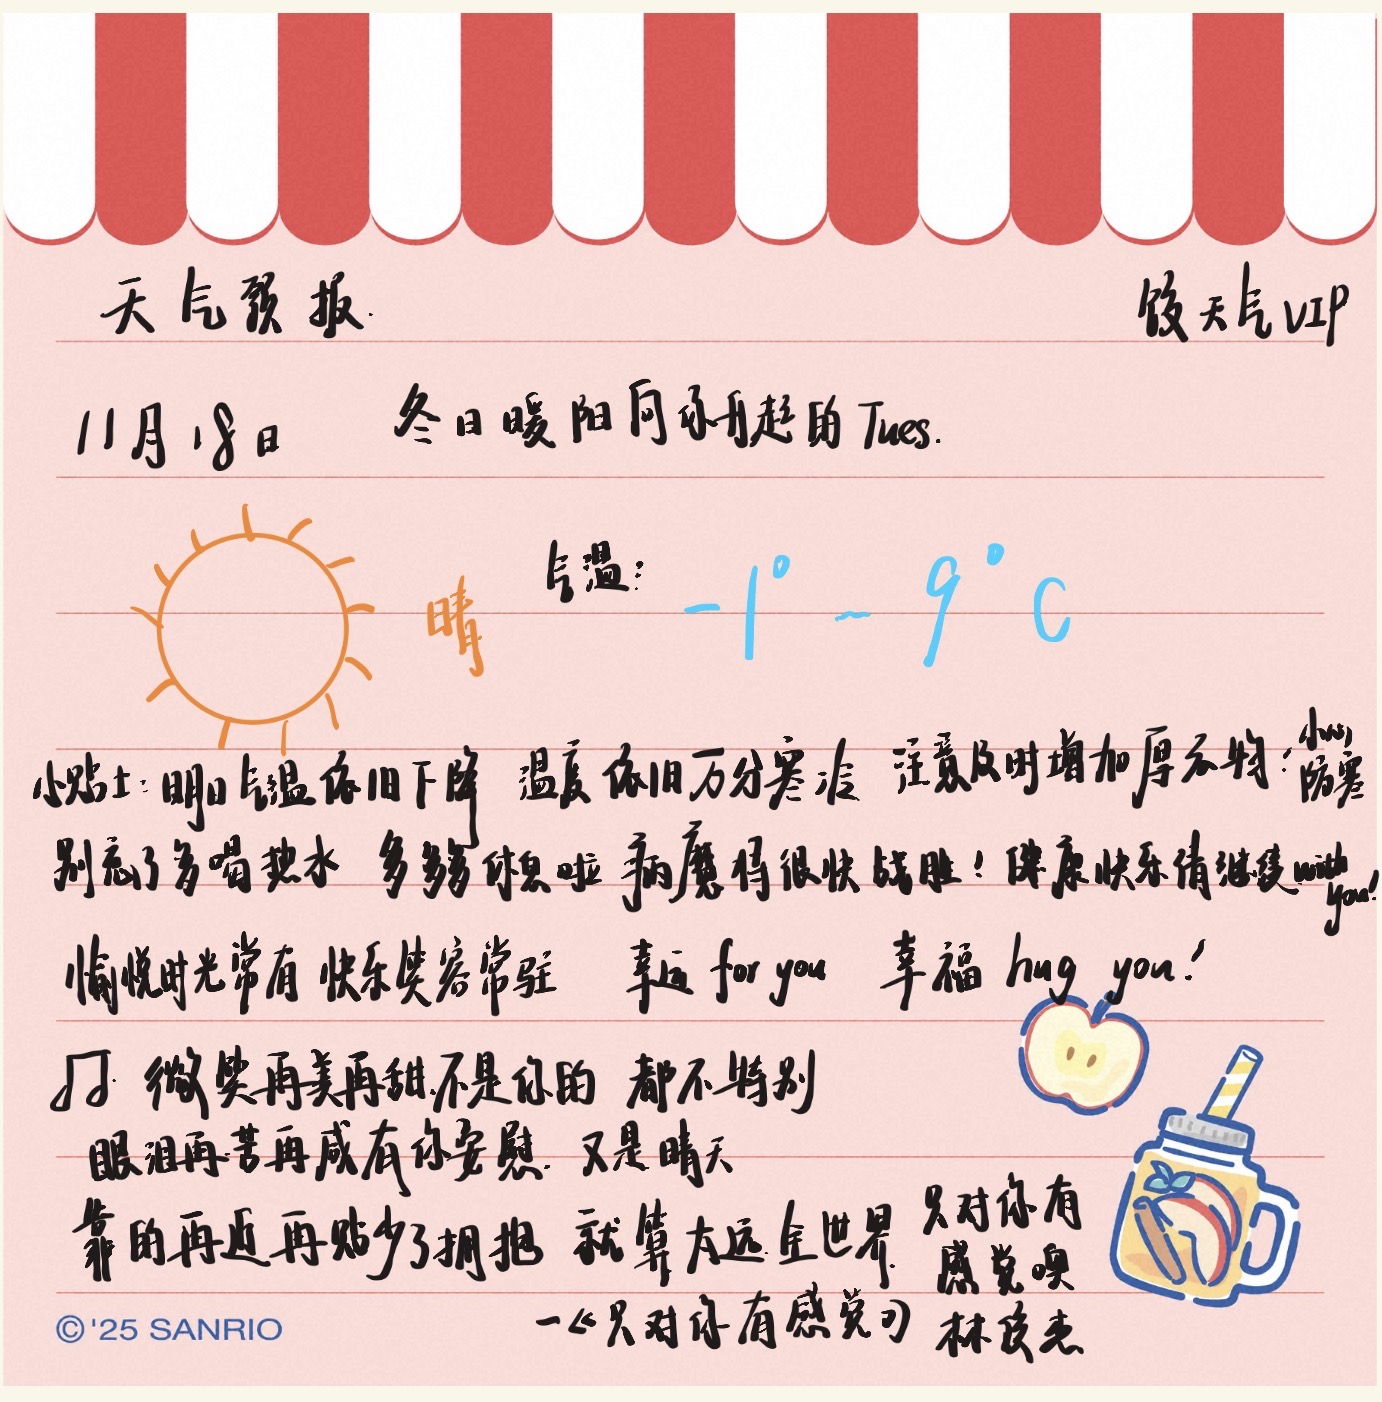 天气预报.
饺天气VIP
11月18日 冬日暖阳向你升起的Tues.
晴 气温: -1° ~ 9°C
小贴士: 明日气温依旧下降 温度依旧万分寒冷 注意及时增加厚衣物!
防寒
别忘了多喝热水 多多多休息啦 病魔将很快战胜! 健康快乐倩继续with you!
愉悦时光常有 快乐笑容常驻 幸运 for you 幸福 hug you!
微笑再美再甜不是你的 都不特别
眼泪再苦再咸有你安慰 又是晴天
靠的再近再贴少了拥抱 就算太远 全世界
只对你有
感觉噢
—《只对你有感觉》
林俊杰
©'25 SANRIO